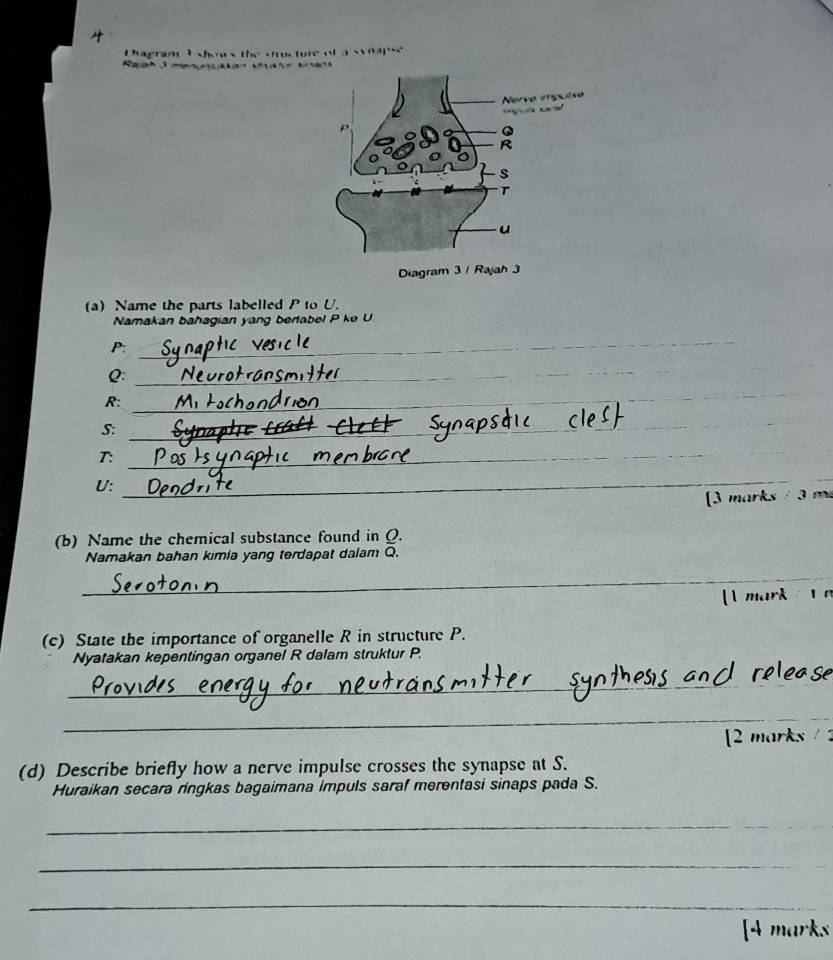 4
Diagram 3 shows the structure of a synapse
Rajah 3 menunjukkan struktur sinaps
Nerve impulse
impuls saraf
P
Q
R
S
T
U
Diagram 3 / Rajah 3
(a) Name the parts labelled P to U.
Namakan bahagian yang berlabel P ke U
P: Synaptic vesicle
Q: Neurotransmitter
R: Mitochondrion
S: Synapsdic cleft
T: Postsynaptic membrane
U: Dendrite
[3 marks / 3
(b) Name the chemical substance found in Q.
Namakan bahan kimia yang terdapat dalam Q.
Serotonin
[1 mark / 1
(c) State the importance of organelle R in structure P.
Nyatakan kepentingan organel R dalam struktur P.
Provides energy for neutransmitter synthesis and release
[2 marks / 2
(d) Describe briefly how a nerve impulse crosses the synapse at S.
Huraikan secara ringkas bagaimana impuls saraf merentasi sinaps pada S.
[4 marks